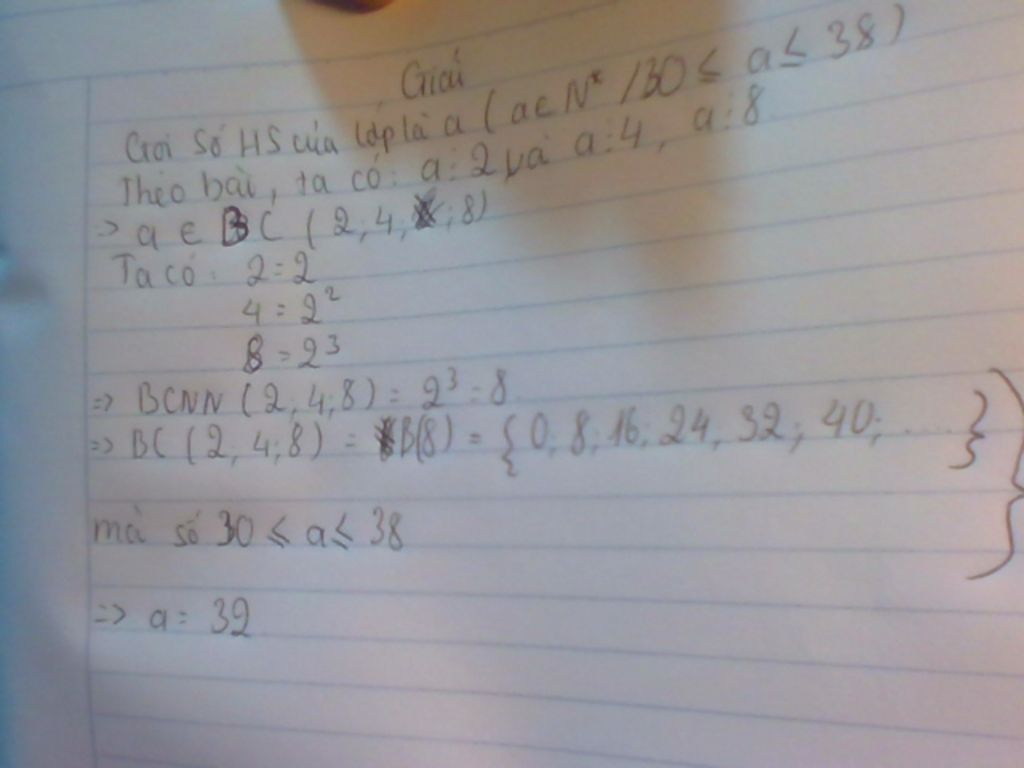 Giải
Gọi số HS của lớp là a ( a ∈ N* / 30 ≤ a ≤ 38 )
Theo bài, ta có: a ⋮ 2 và a ⋮ 4, a ⋮ 8
=> a ∈ BC ( 2; 4; 8)
Ta có: 2 = 2
4 = 2²
8 = 2³
=> BCNN ( 2; 4; 8) = 2³ = 8.
=> BC ( 2; 4; 8) = B(8) = { 0; 8; 16; 24; 32; 40; ..... }
mà số 30 ≤ a ≤ 38
=> a = 32